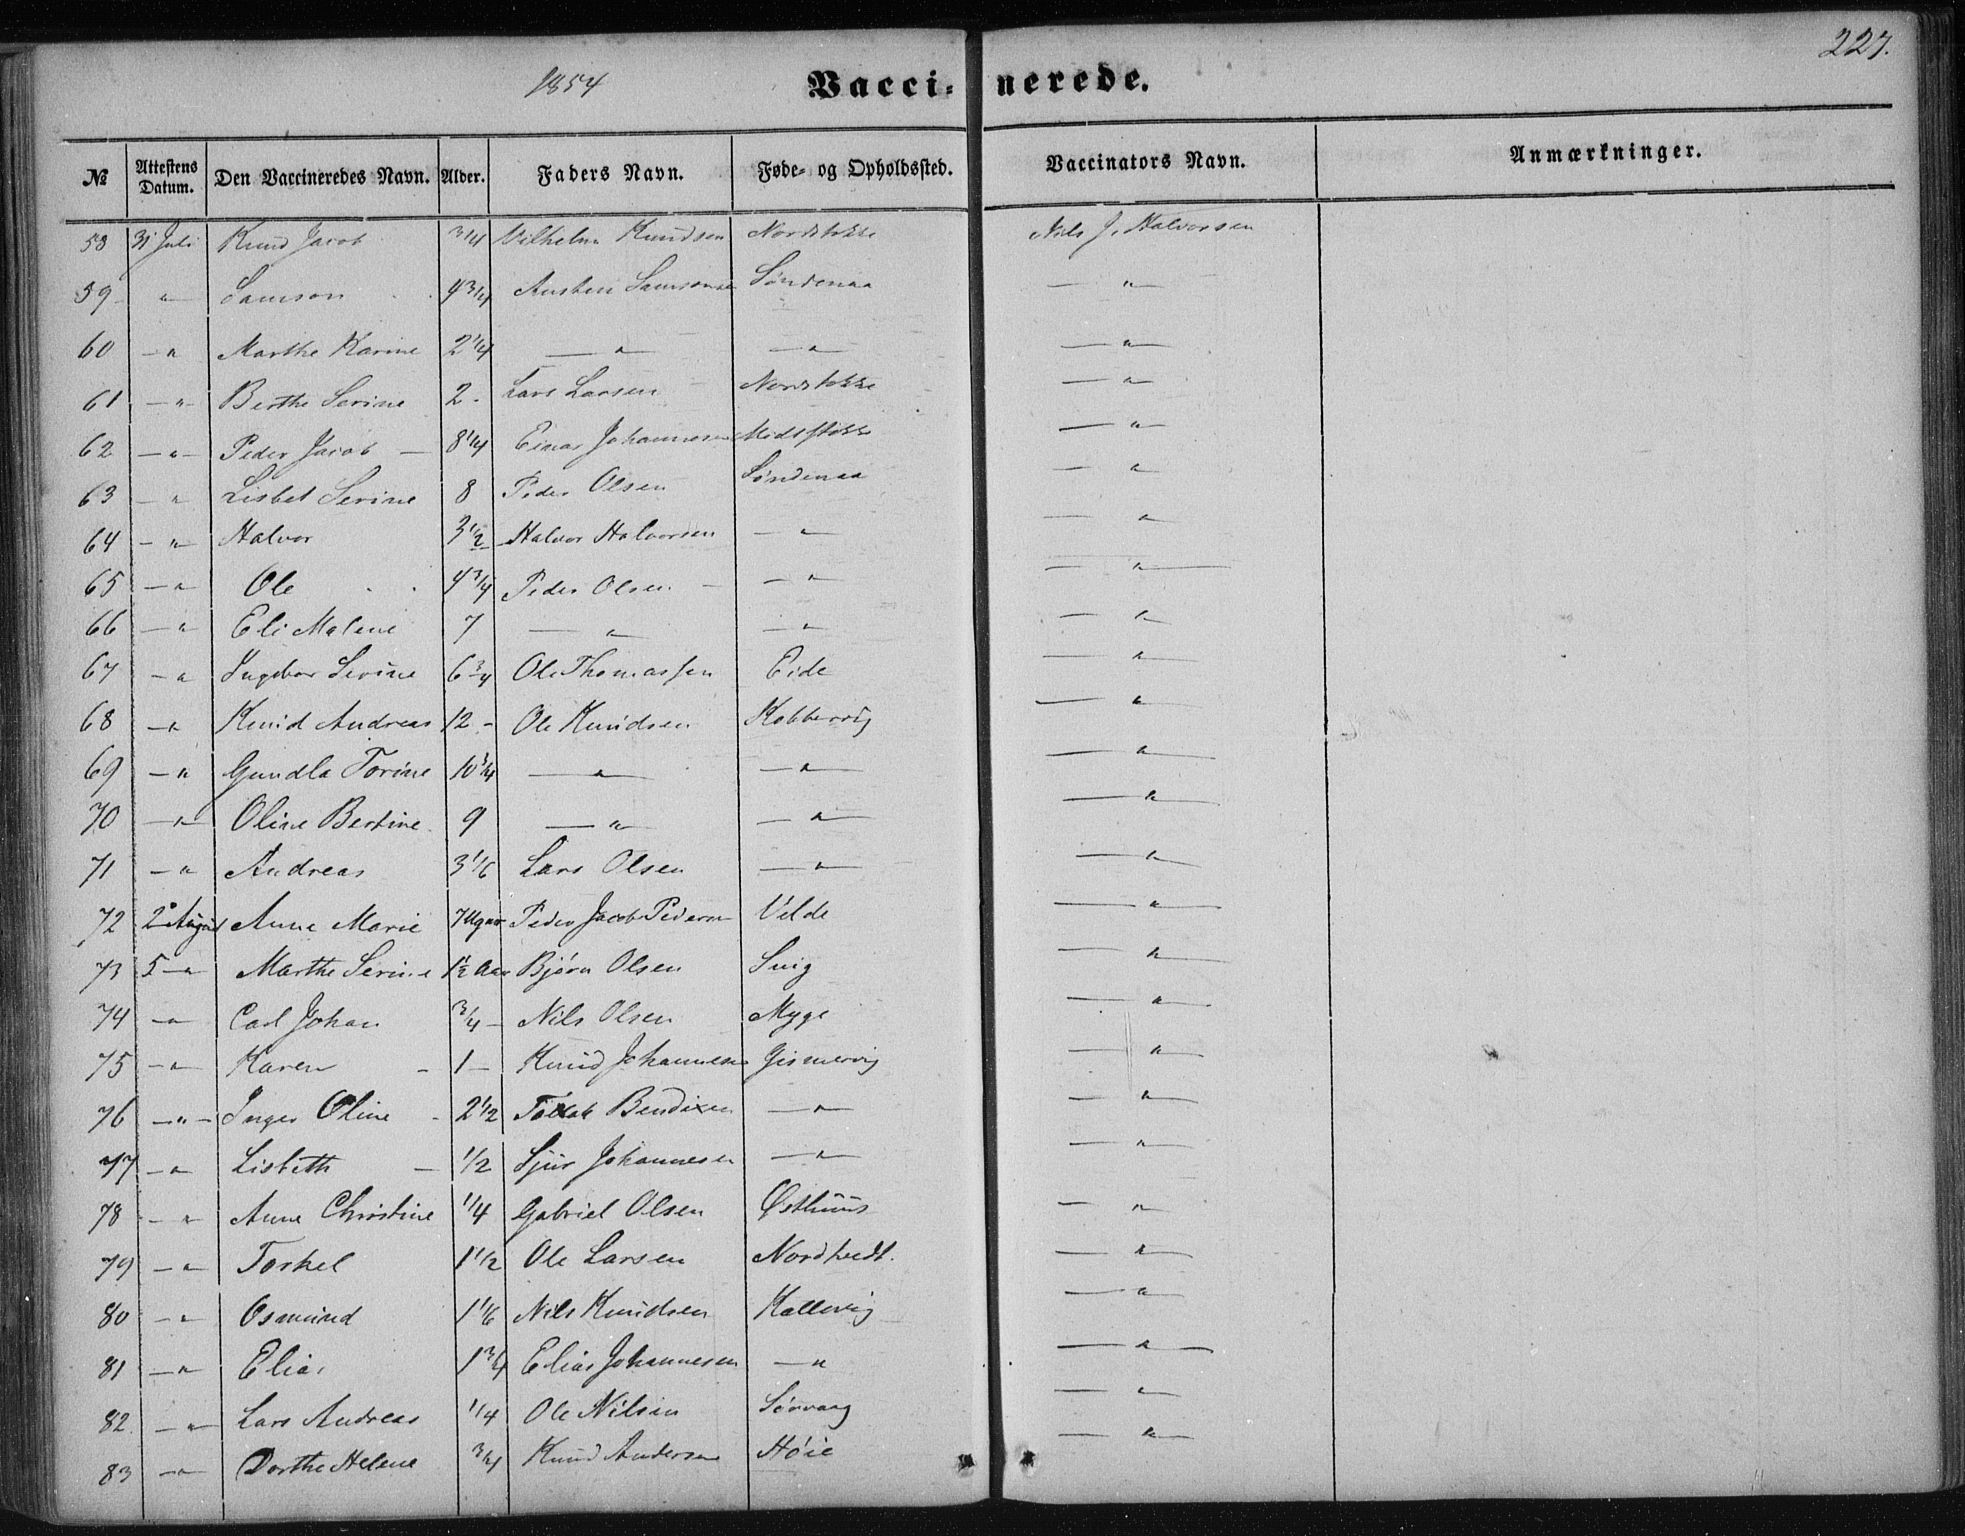 227.
1854
Vaccinerede.
№ Attestens Datum. Den Vaccineredes Navn. Alder. Faders Navn. Føde- og Opholdssted. Vaccinators Navn. Anmærkninger.
58 31 Juli Knud Jacob 3/4 Vilhelm Knudsen Nordstokke Nils J. Halvorsen
59 — " Samson 4 3/4 Austen Samsonsen Søndenaa — " —
60 — " Marthe Karine 2 1/4 — " — — " — — " —
61 — " — Berthe Serine 2 - Lars Larsen Nordstokke — " —
62 — " — Peder Jacob — 8 1/4 Einar Johannesen Midtstokke — " —
63 — " Lisbet Serine 8 Peder Olsen Søndenaa — " —
64 — " — Halvor 3 1/2 Halvor Halvorsen — " — — " —
65 — " — Ole 4 3/4 Peder Olsen — — " — — " —
66 — " — Eli Malene 7 — " — — " — — " —
67 — " Ingebor Serine 6 3/4 Ole Thomassen Eide — " —
68 — " Knud Andreas 12 - Ole Knudsen Kobbervig — " —
69 — " Gundla Torine 10 3/4 — " — — " — — " —
70 — " — Oline Bertine 9 — " — — " — — " —
71 — " Andreas 3 1/6 Lars Olsen — " — — " —
72 2 August Anne Marie 7 Uger Peder Jacob Pedersen Velde — " —
73 5 — " Marthe Serine 1 1/2 Aar Bjørn Olsen Snig — " —
74 — " — Carl Johan 3/4 — Nils Olsen Myge — " —
75 — " — Karen — 1 — Knud Johannesen Gismervig — " —
76 — " — Inger Oline - 2 1/2 Tollak Bendixen — " — — " —
77 — " — Lisbeth — 1/2 Sjur Johannesen — " — — " —
78 — " Anne Christine 1/4 Gabriel Olsen Østhuus — " —
79 — " Torkel 1 1/2 Ole Larsen Nordtvedt. — " —
80 — " Osmund 1 1/6 Nils Knudsen Kallevig — " —
81 — " — Elias 1 3/4 Elias Johannesen — " — " —
82. — " — Lars Andreas 1/4 Ole Nilsen Sørvaag — " —
83 — " — Dorthe Helene 3/4 Knud Andersen Høie — " —